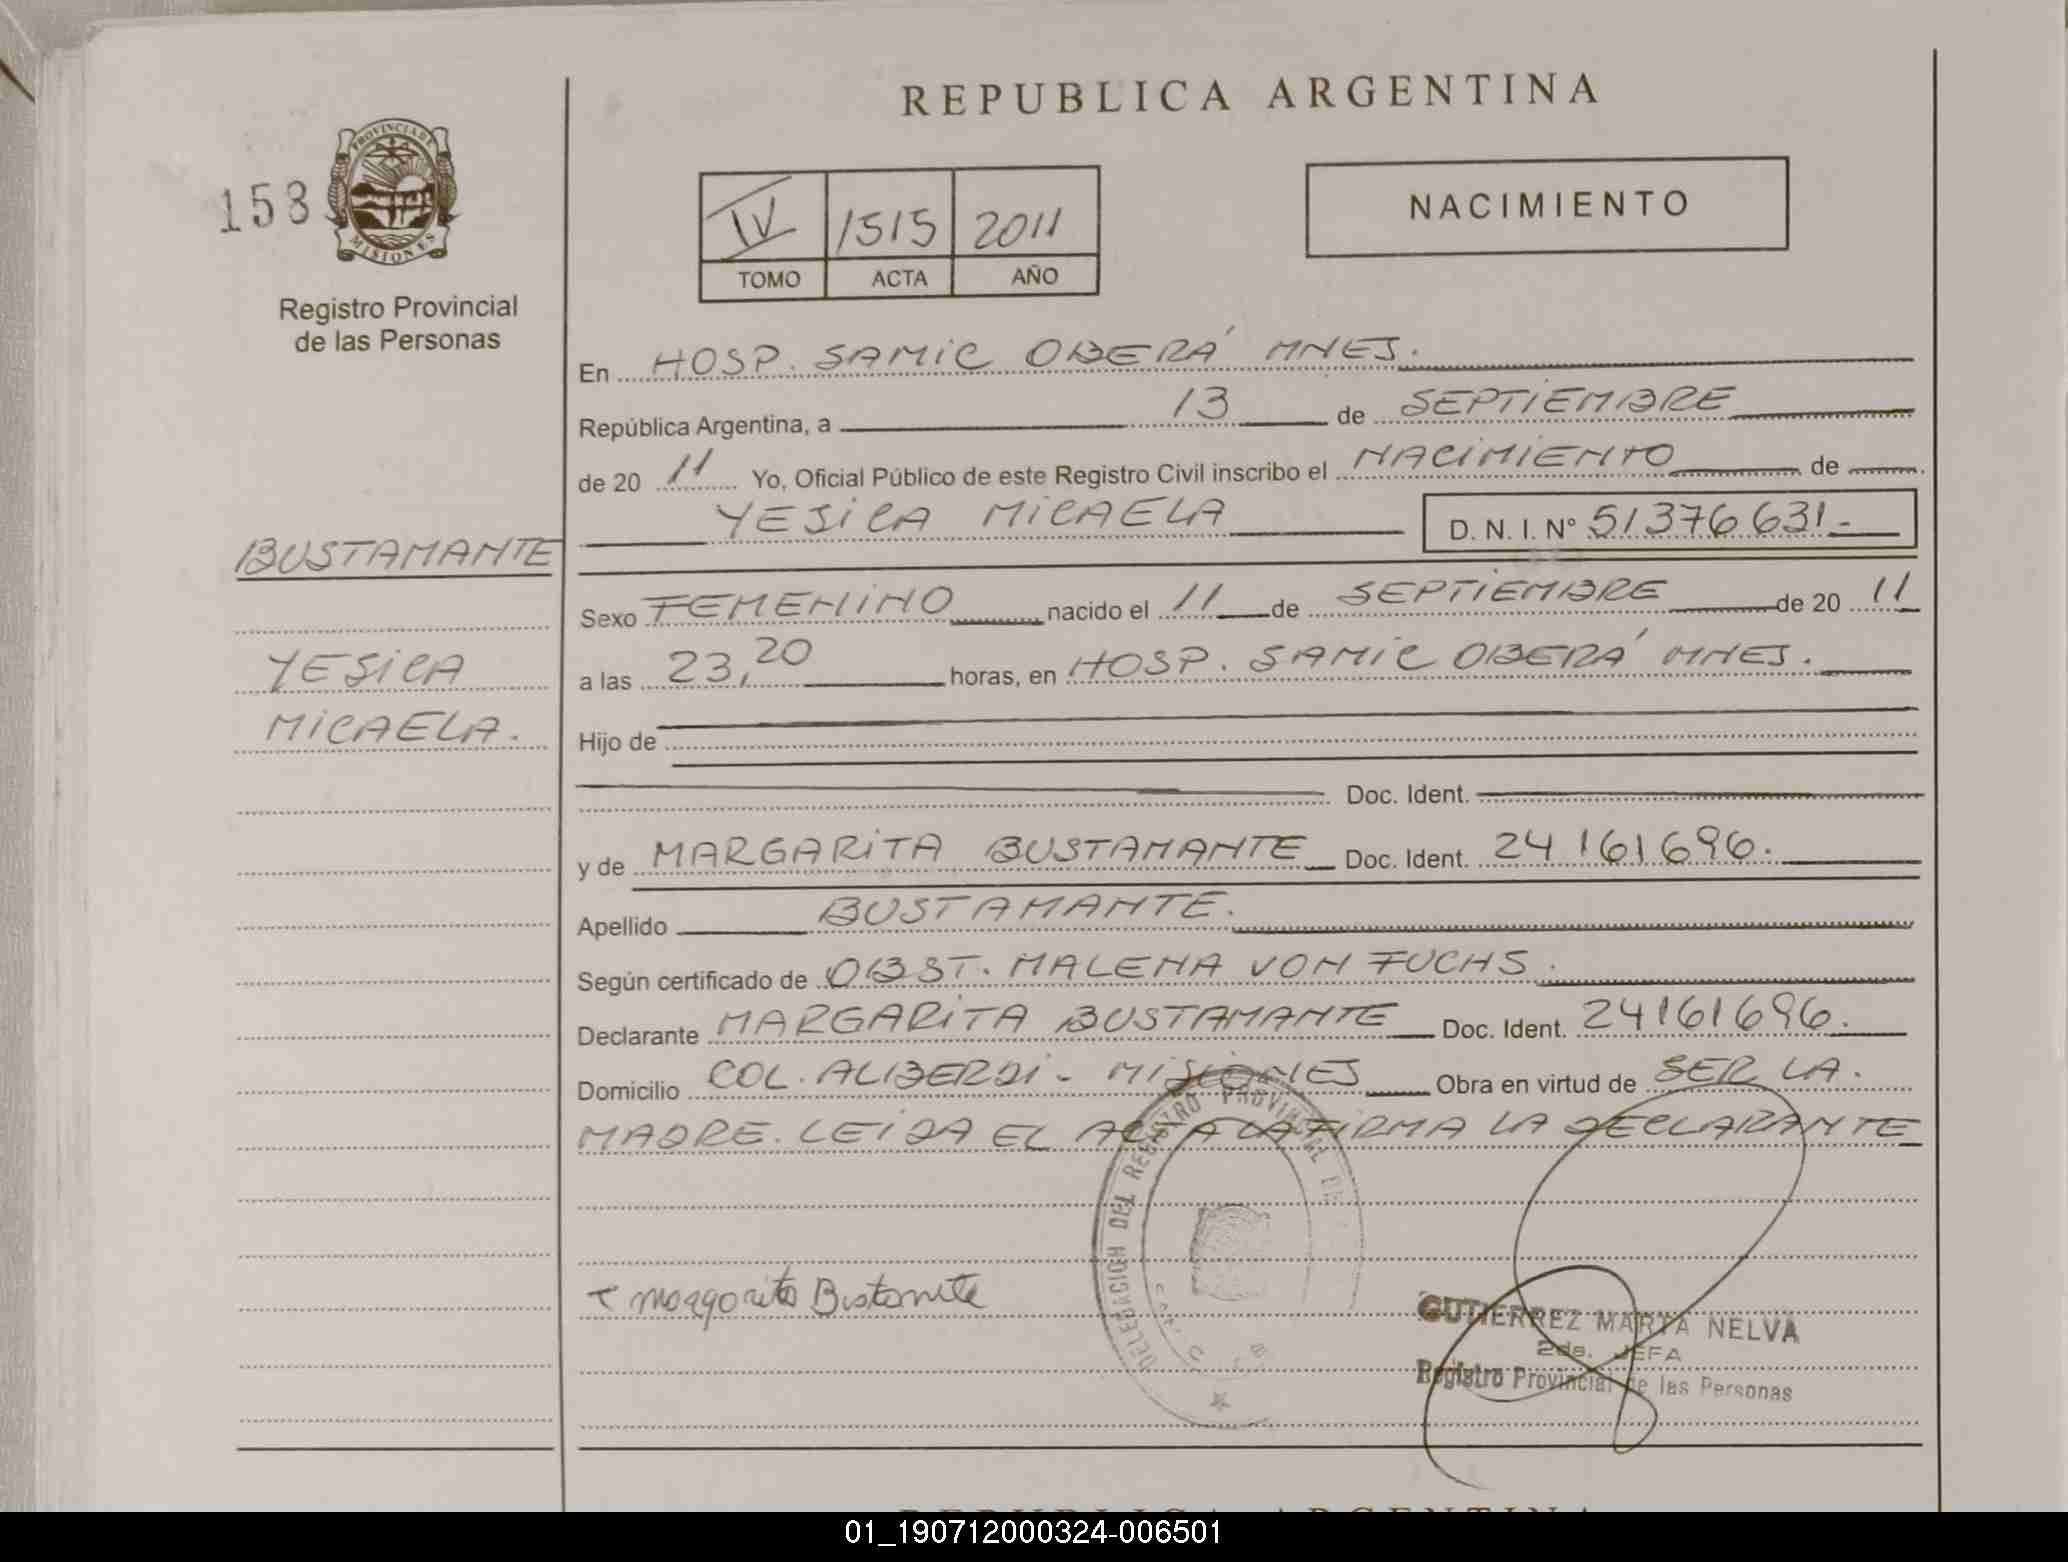 REPUBLICA ARGENTINA
158
PROVINCIA DE
MISIONES
Registro Provincial
de las Personas
IV 1515 2011
TOMO ACTA AÑO
NACIMIENTO
En HOSP. SAMIC OBERÁ MNES.
República Argentina, a 13 de SEPTIEMBRE
de 20 11 Yo, Oficial Público de este Registro Civil inscribo el NACIMIENTO de
YESICA MICAELA D. N. I. Nº 51376631.-
BUSTAMANTE
YESICA
MICAELA.
Sexo FEMENINO nacido el 11 de SEPTIEMBRE de 20 11
a las 23,20 horas, en HOSP. SAMIC OBERÁ MNES.
Hijo de
Doc. Ident.
y de MARGARITA BUSTAMANTE Doc. Ident. 24 161 696.
Apellido BUSTAMANTE.
Según certificado de OBST. MALENA VON FUCHS.
Declarante MARGARITA BUSTAMANTE Doc. Ident. 24161696.
Domicilio COL. ALBERDI - MISIONES Obra en virtud de SER LA.
MADRE. LEIDA EL ACTA LA FIRMA LA DECLARANTE
DELEGACION DEL REGISTRO PROVINCIAL DE
Margarita Bustamante
GUTIERREZ MARTA NELVA
2da. JEFA
Registro Provincial de las Personas
REPUBLICA ARGENTINA
01_190712000324-006501